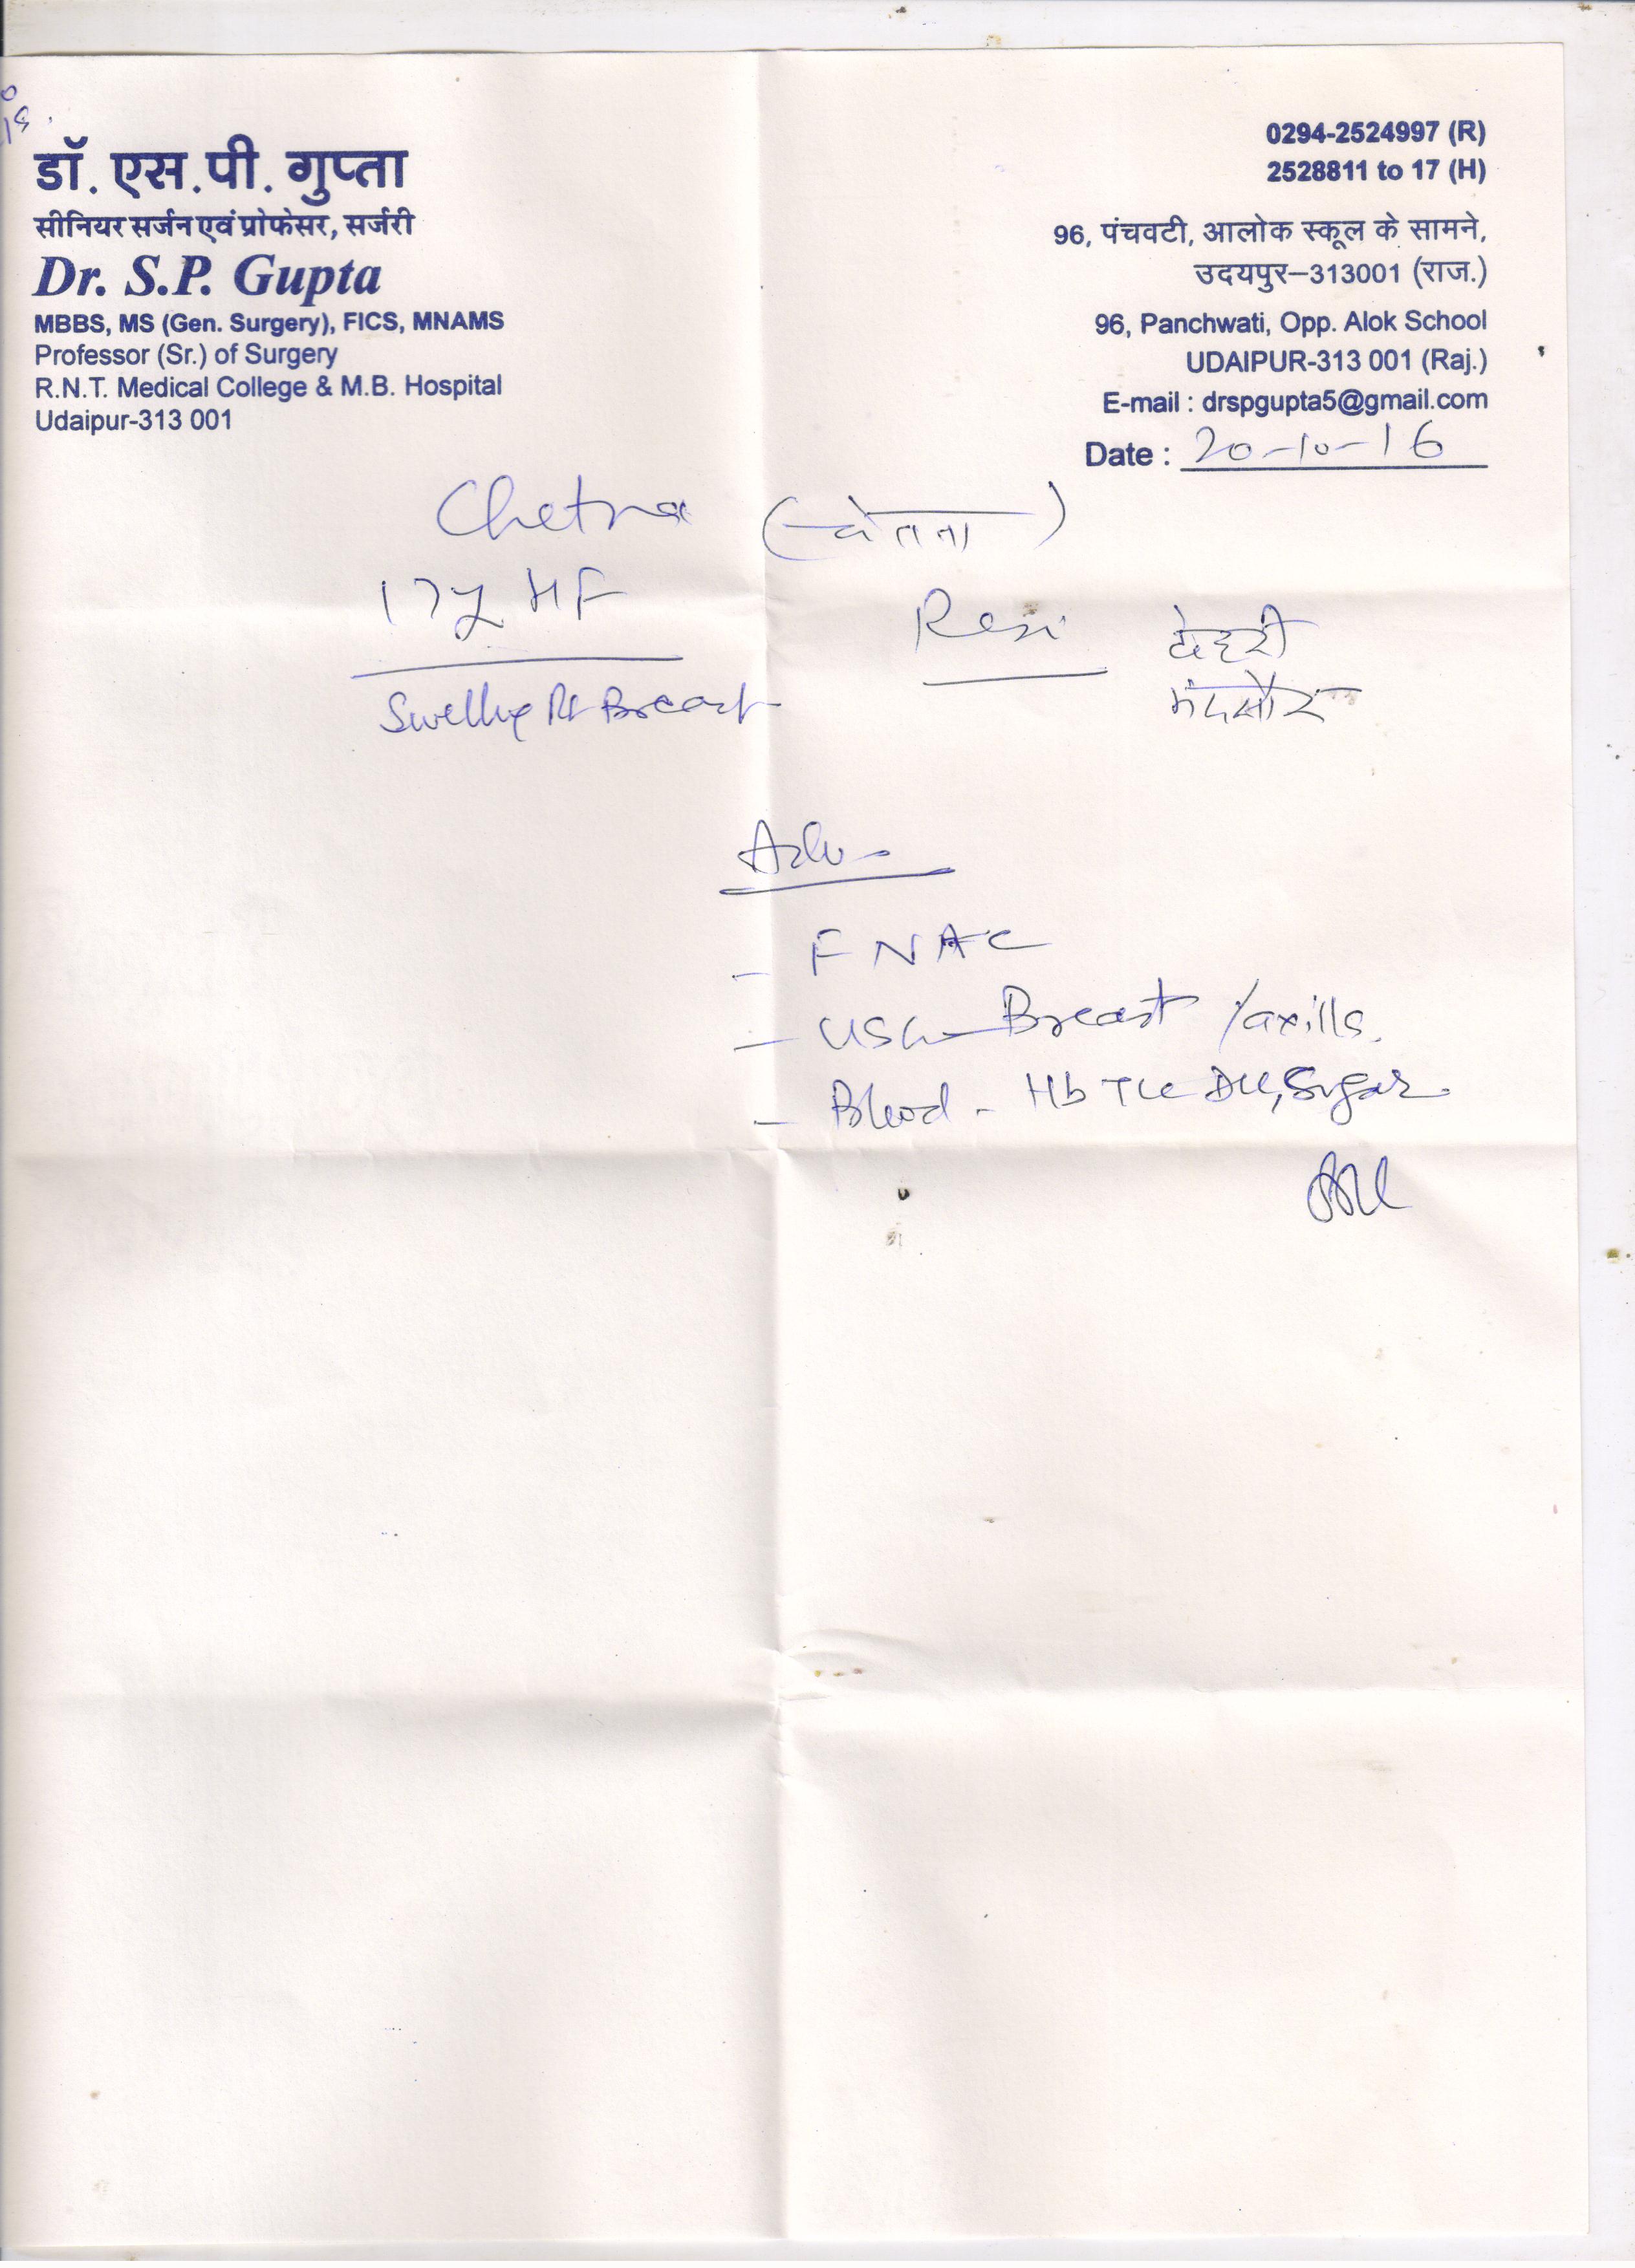 डॉ. एस.पी. गुप्ता
सीनियर सर्जन एवं प्रोफेसर, सर्जरी
Dr. S.P. Gupta
MBBS, MS (Gen. Surgery), FICS, MNAMS
Professor (Sr.) of Surgery
R.N.T. Medical College & M.B. Hospital
Udaipur-313 001
0294-2524997 (R)
2528811 to 17 (H)
96, पंचवटी, आलोक स्कूल के सामने,
उदयपुर–313001 (राज.)
96, Panchwati, Opp. Alok School
UDAIPUR-313 001 (Raj.)
E-mail : drspgupta5@gmail.com
Date : 20-10-16
Chetna (चेतना)
17y HF
Resi
मंदसौर
Swelling Rt Breast
Adv-
- FNAC
- USG- Breast /axilla
- Blood - Hb TLC DLC, Sugar